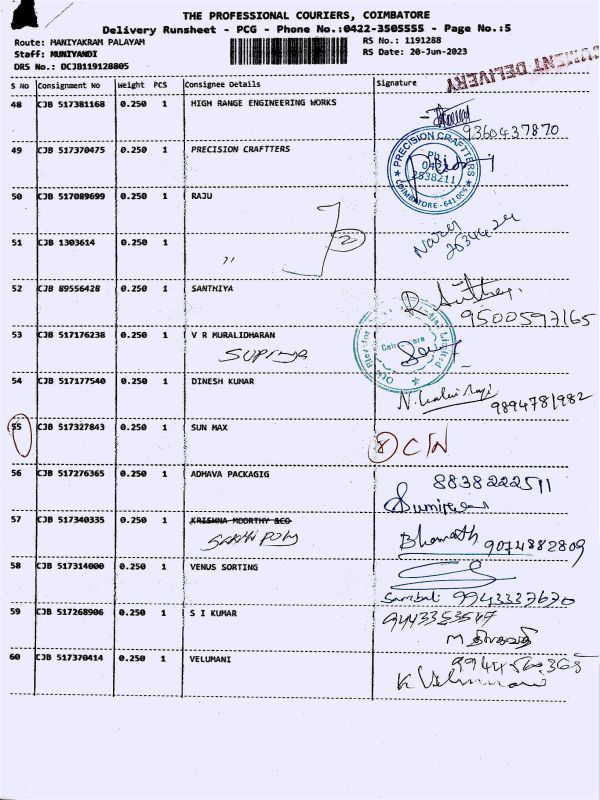 THE PROFESSIONAL COURIERS, COIMBATORE
Delivery Runsheet - PCG - Phone No.:0422-3505555 - Page No.:5
Route: MANIYAKRAM PALAYAM
RS No.: 1191288
Staff: MUNIYANDI
RS Date: 20-Jun-2023
DRS No.: DCJB119128805
DELIVERY
S No Consignment No Weight PCS Consignee Details Signature
48 CJB 517381168 0.250 1 HIGH RANGE ENGINEERING WORKS
9360437870
49 CJB 517370475 0.250 1 PRECISION CRAFTTERS
PRECISION CRAFTTERS
2538211
COIMBATORE - 641 006
50 CJB 517089699 0.250 1 RAJU
2634424
51 CJB 1303614 0.250 1
2
52 CJB 89556428 0.250 1 SANTHIYA
9500597165
53 CJB 517176238 0.250 1 V R MURALIDHARAN
Supriya
54 CJB 517177540 0.250 1 DINESH KUMAR
9894781982
55 CJB 517327843 0.250 1 SUN MAX
8 C/N
56 CJB 517276365 0.250 1 ADHAVA PACKAGIG
8838222511
57 CJB 517340335 0.250 1 KRISHNA MOORTHY &CO
Bharath 9074882809
58 CJB 517314000 0.250 1 VENUS SORTING
9943337670
59 CJB 517268906 0.250 1 S I KUMAR
9443353547
60 CJB 517370414 0.250 1 VELUMANI
K Velumani